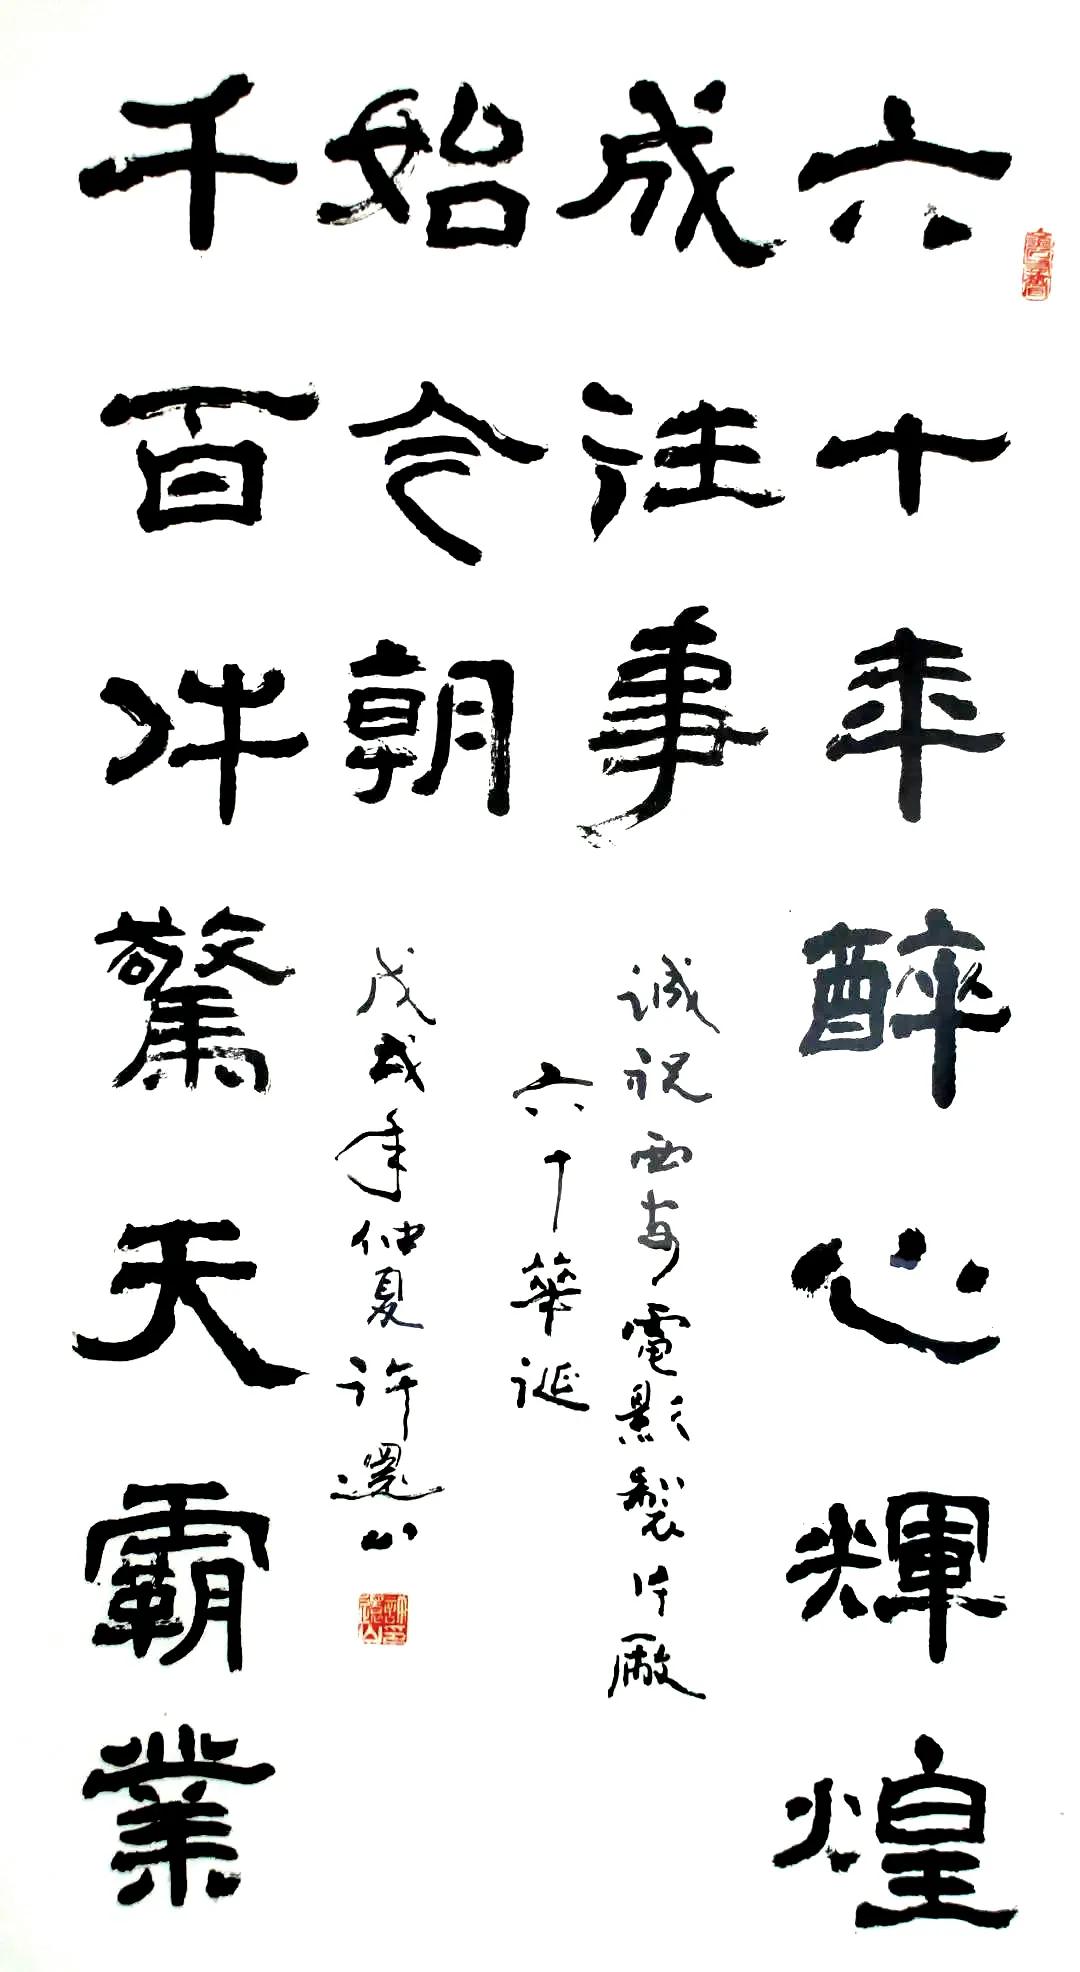 六十年醉心輝煌
成往事
千百件驚天霸業
始今朝
誠祝西安電影製片廠
六十華誕
戊戌年仲夏許還山
許印還山